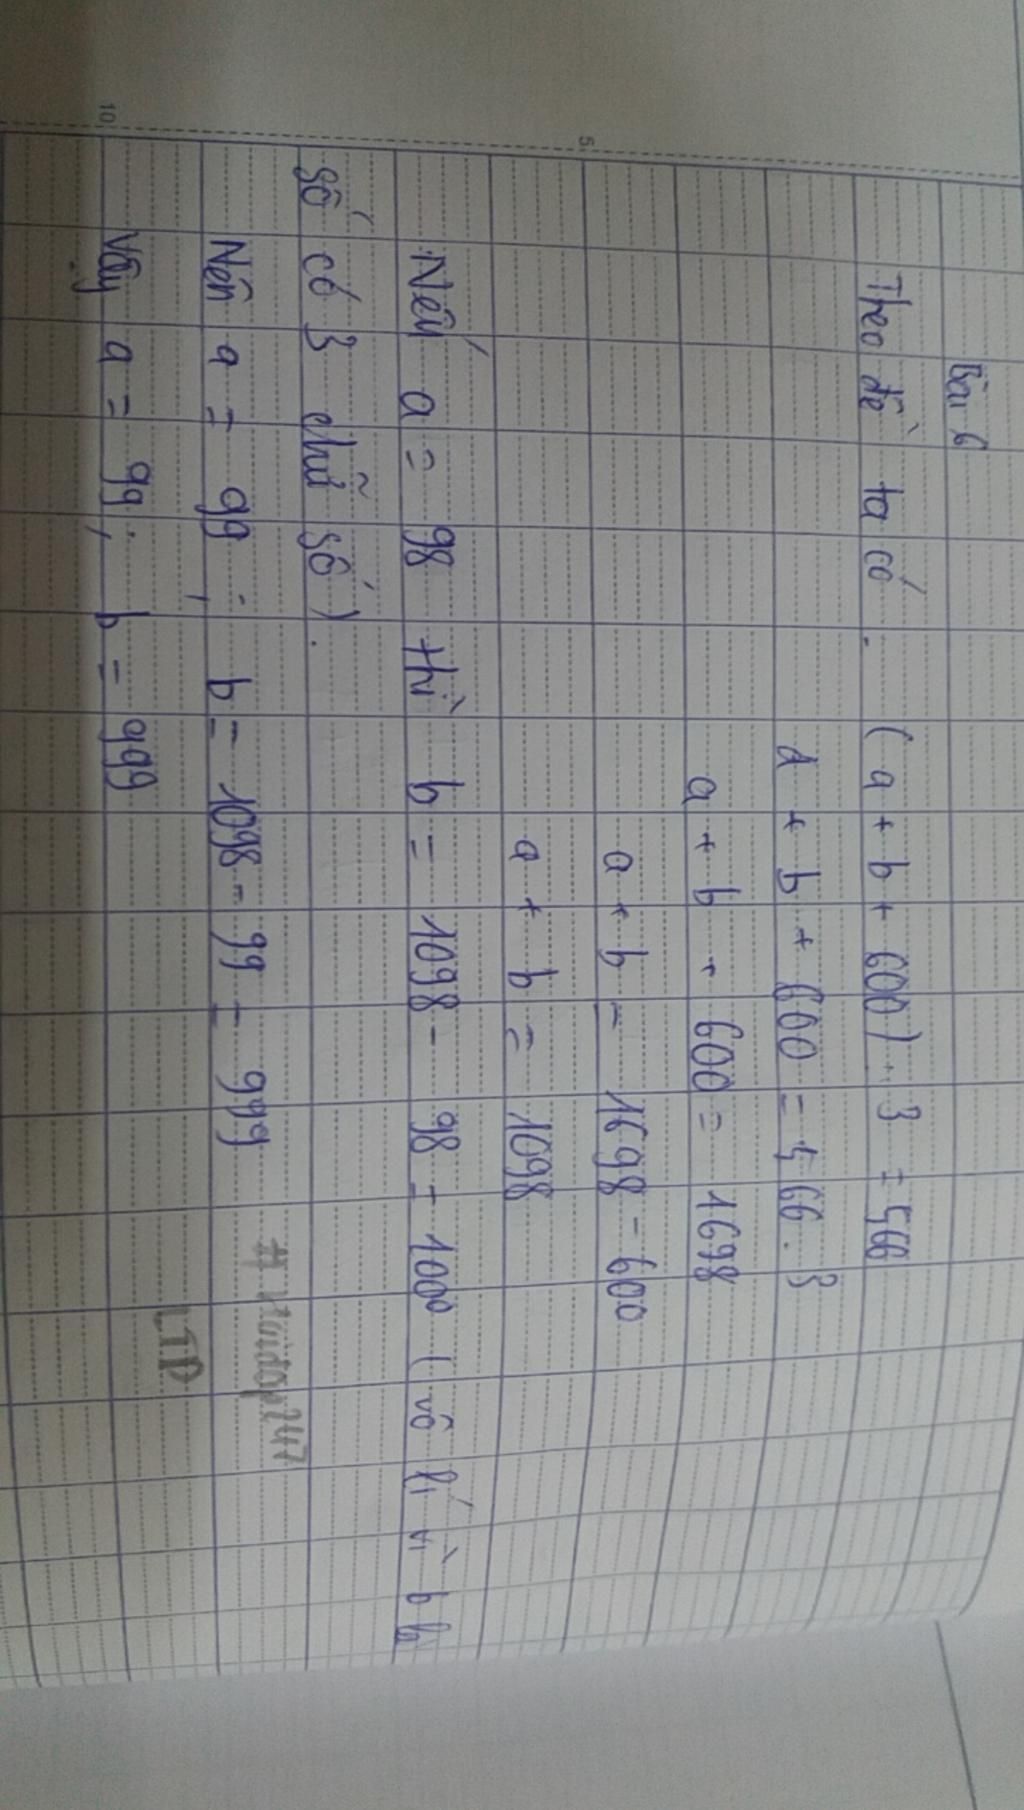 Bài 6
Theo đề ta có. (a + b + 600) : 3 = 566
a + b + 600 = 566 . 3
a + b + 600 = 1698
a + b = 1698 - 600
a + b = 1098
Nếu a = 98 thì b = 1098 - 98 = 1000 (vô lí vì b là
số có 3 chữ số).
Nên a = 99 ; b = 1098 - 99 = 999
Vậy a = 99; b = 999
LTP
5
10